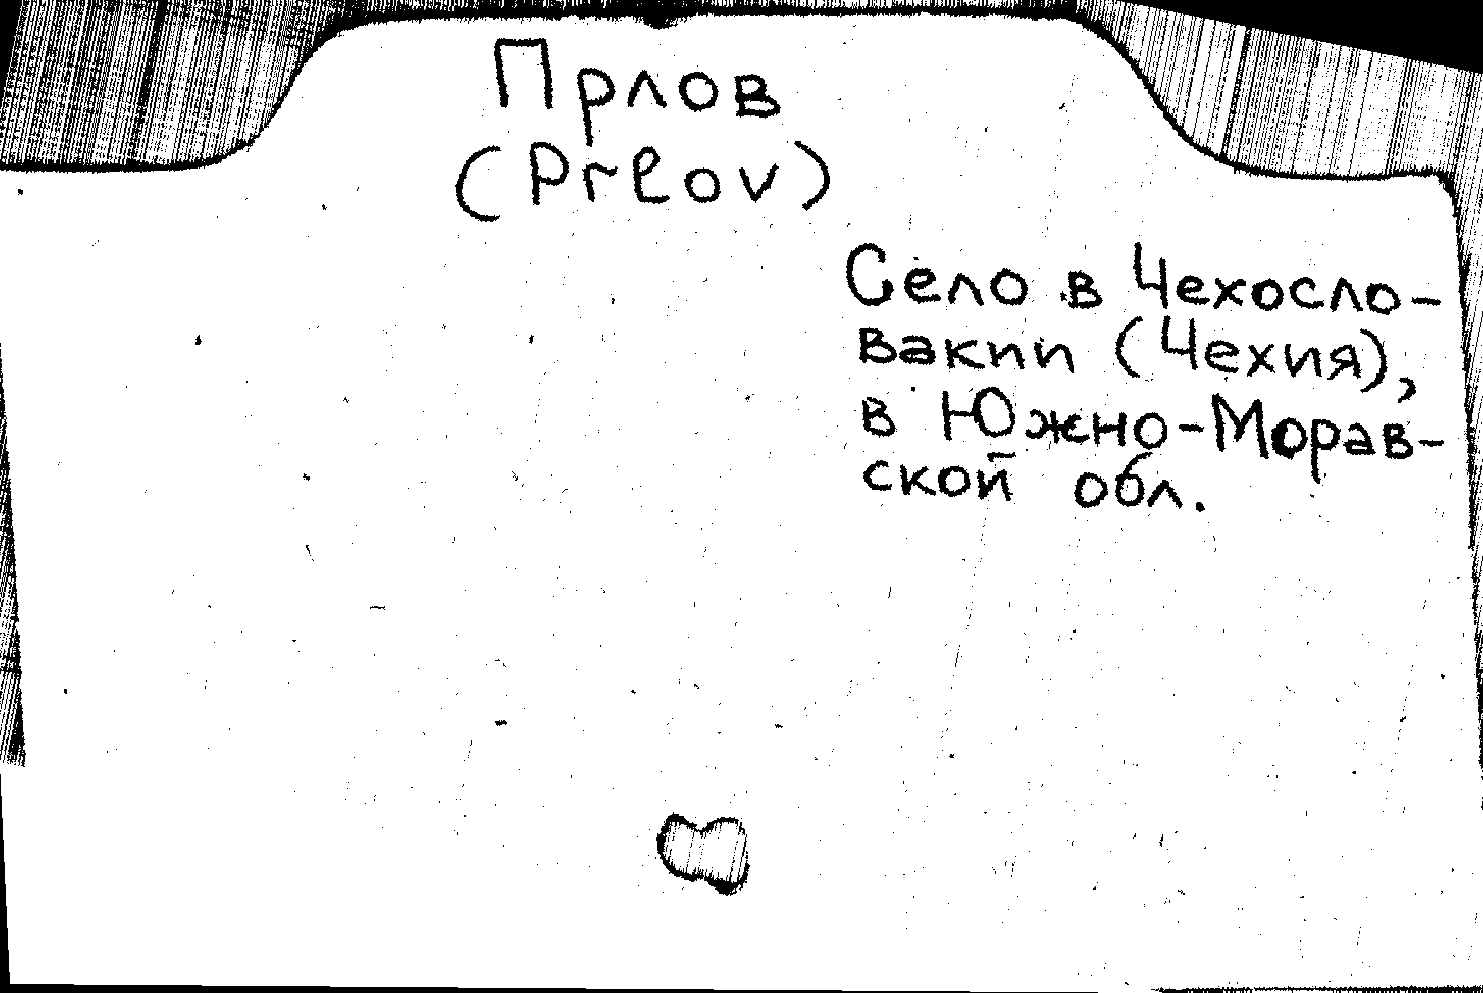 Прлов
(Prlov)
Село в Чехосло-
вакии (Чехия),
в Южно-Морав-
ской обл.